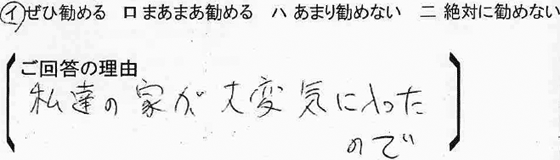 イ ぜひ勧める ロ まあまあ勧める ハ あまり勧めない ニ 絶対に勧めない
ご回答の理由
私達の家が大変気に入った
ので